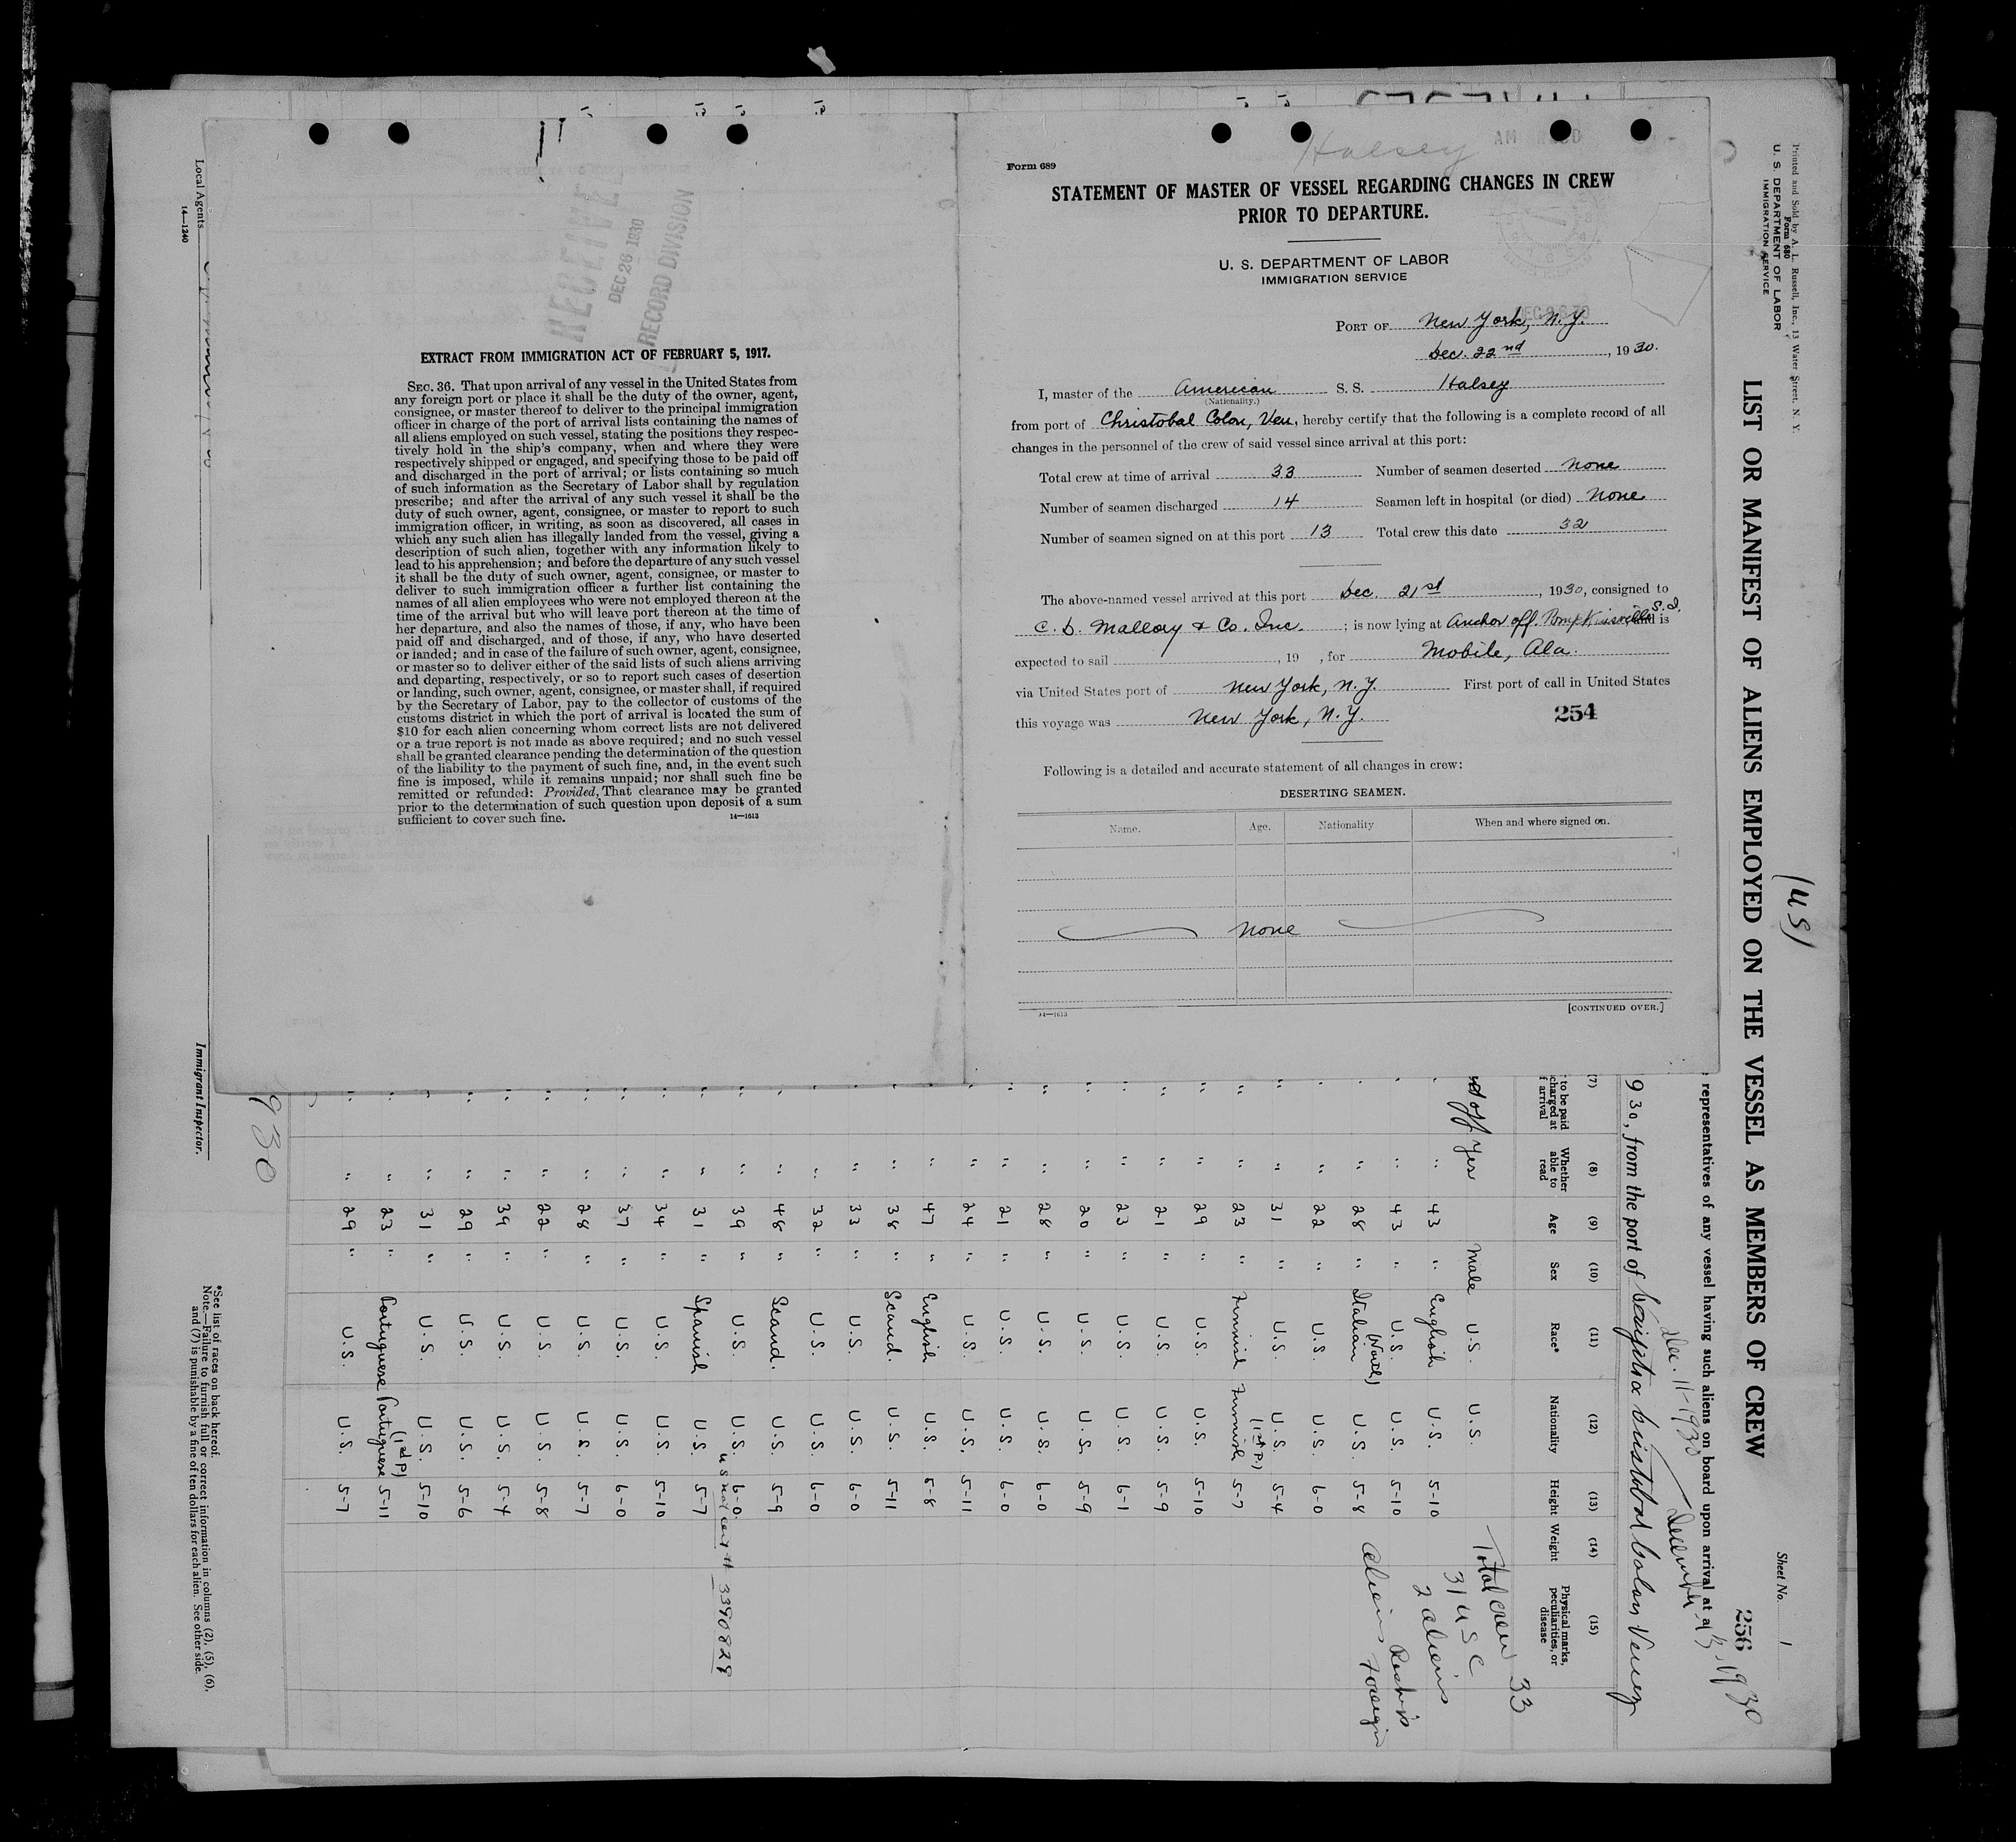 Halsey
Form 689
STATEMENT OF MASTER OF VESSEL REGARDING CHANGES IN CREW
PRIOR TO DEPARTURE.
U. S. DEPARTMENT OF LABOR
IMMIGRATION SERVICE
PORT OF New York, N.Y.
Dec. 22nd, 1930.
I, master of the American S. S. Halsey
(Nationality.)
from port of Christobal Colon, Ven., hereby certify that the following is a complete record of all
changes in the personnel of the crew of said vessel since arrival at this port:
Total crew at time of arrival 33 Number of seamen deserted none
Number of seamen discharged 14 Seamen left in hospital (or died) none
Number of seamen signed on at this port 13 Total crew this date 32
The above-named vessel arrived at this port Dec. 21st, 1930, consigned to
C. D. Mallory & Co. Inc. ; is now lying at Anchor off Tompkinsville S.I. and is
expected to sail , 19 , for Mobile, Ala.
via United States port of New York, N.Y. First port of call in United States
this voyage was New York, N.Y.
254
Following is a detailed and accurate statement of all changes in crew:
DESERTING SEAMEN.
Name. Age. Nationality When and where signed on.
None
14—1613
[CONTINUED OVER.]
RECEIVE
DEC 26 1930
RECORD DIVISION
EXTRACT FROM IMMIGRATION ACT OF FEBRUARY 5, 1917.
SEC. 36. That upon arrival of any vessel in the United States from
any foreign port or place it shall be the duty of the owner, agent,
consignee, or master thereof to deliver to the principal immigration
officer in charge of the port of arrival lists containing the names of
all aliens employed on such vessel, stating the positions they respec-
tively hold in the ship's company, when and where they were
respectively shipped or engaged, and specifying those to be paid off
and discharged in the port of arrival; or lists containing so much
of such information as the Secretary of Labor shall by regulation
prescribe; and after the arrival of any such vessel it shall be the
duty of such owner, agent, consignee, or master to report to such
immigration officer, in writing, as soon as discovered, all cases in
which any such alien has illegally landed from the vessel, giving a
description of such alien, together with any information likely to
lead to his apprehension; and before the departure of any such vessel
it shall be the duty of such owner, agent, consignee, or master to
deliver to such immigration officer a further list containing the
names of all alien employees who were not employed thereon at the
time of the arrival but who will leave port thereon at the time of
her departure, and also the names of those, if any, who have been
paid off and discharged, and of those, if any, who have deserted
or landed; and in case of the failure of such owner, agent, consignee,
or master so to deliver either of the said lists of such aliens arriving
and departing, respectively, or so to report such cases of desertion
or landing, such owner, agent, consignee, or master shall, if required
by the Secretary of Labor, pay to the collector of customs of the
customs district in which the port of arrival is located the sum of
$10 for each alien concerning whom correct lists are not delivered
or a true report is not made as above required; and no such vessel
shall be granted clearance pending the determination of the question
of the liability to the payment of such fine, and, in the event such
fine is imposed, while it remains unpaid; nor shall such fine be
remitted or refunded: Provided, That clearance may be granted
prior to the determination of such question upon deposit of a sum
sufficient to cover such fine.
14—1613
Printed and Sold by A. L. Russell, Inc., 13 Water Street, N. Y.
Form 680
U. S. DEPARTMENT OF LABOR
IMMIGRATION SERVICE
(US)
Sheet No. 1
256
LIST OR MANIFEST OF ALIENS EMPLOYED ON THE VESSEL AS MEMBERS OF CREW
representatives of any vessel having such aliens on board upon arrival at a
Dec. 11-1930
930, from the port of
(7) (8) (9) (10) (11) (12) (13) (14) (15)
to be paid Whether able to read Age Sex Race* Nationality Height Weight Physical marks, peculiarities, or disease
off Yes Male U.S. U.S.
" 43 " English U.S. 5-10
" 43 " U.S. U.S. 5-10
" 28 " Italian (North) U.S. 5-8
" 22 " U.S. U.S. 6-0
" 31 " U.S. U.S. 5-4
" 23 " Finnish Finnish (1st P) 5-7
" 29 " U.S. U.S. 5-10
" 21 " U.S. U.S. 5-9
" 23 " U.S. U.S. 6-1
" 20 " U.S. U.S. 5-9
" 28 " U.S. U.S. 6-0
" 21 " U.S. U.S. 6-0
" 24 " U.S. U.S. 5-11
" 47 " English U.S. 5-8
" 38 " Scand. U.S. 5-11
" 33 " U.S. U.S. 6-0
" 32 " U.S. U.S. 6-0
" 48 " Scand. U.S. 5-9
" 39 " U.S. U.S. 6-0
" 31 " Spanish U.S. 5-7
" 34 " U.S. U.S. 5-10
" 37 " U.S. U.S. 6-0
" 28 " U.S. U.S. 5-7
" 22 " U.S. U.S. 5-8
" 39 " U.S. U.S. 5-4
" 29 " U.S. U.S. 5-6
" 31 " U.S. U.S. 5-10
" 23 " Portuguese Portuguese (1st P) 5-11
" 29 " U.S. U.S. 5-7
Total crew 33
31 USC
2 aliens
Aliens Foreign
US nat cert # 3390828
930
*See list of races on back hereof.
Note.—Failure to furnish full or correct information in columns (2), (5), (6),
and (7) is punishable by a fine of ten dollars for each alien. See other side.
Immigrant Inspector.
Local Agents
14—1240